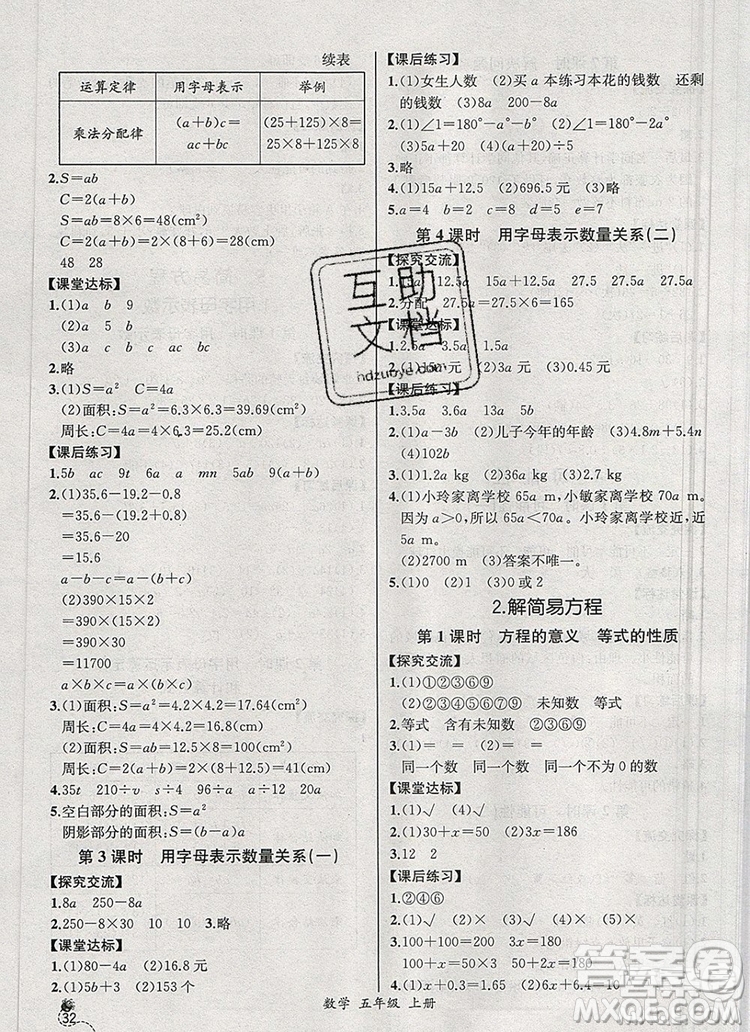 续表
运算定律 用字母表示 举例
乘法分配律 (a+b)c=ac+bc (25+125)×8=25×8+125×8
2.S=ab
C=2(a+b)
S=ab=8×6=48(cm²)
C=2(a+b)=2×(8+6)=28(cm)
48 28
【课堂达标】
1.(1)a b 9
(2)a 5
(3)a c b c ac bc
2.略
3.(1)S=a² C=4a
(2)面积:S=a²=6.3×6.3=39.69(cm²)
周长:C=4a=4×6.3=25.2(cm)
【课后练习】
1.5b ac 9t 6a a mn 5ab a b
2.(1)35.6-19.2-0.8
=35.6-(19.2+0.8)
=35.6-20
=15.6
a-b-c=a-(b+c)
(2)390×15×2
=390×(15×2)
=390×30
=11700
a×b×c=a×(b×c)
3.(1)面积:S=a²=4.2×4.2=17.64(cm²)
周长:C=4a=4×4.2=16.8(cm)
(2)面积:S=ab=12.5×8=100(cm²)
周长:C=2(a+b)=2×(12.5+8)=41(cm)
4.35t 210÷v s÷4 96÷a 120÷t
5.空白部分的面积:S=a²
阴影部分的面积:S=ab-a²
第3课时 用字母表示数量关系(一)
【探究交流】
1.8a 250-8a
2.250-8×30 10 10 3.略
【课堂达标】
1.(1)80-4a (2)16.8元
2.(1)5b+12 (2)153个
【课后练习】
1.(1)女生人数 (2)买a本练习本花的钱数 还剩
的钱数 (3)8a 200-8a
2.(1)∠1=180°-a°-b° (2)∠1=180°-2a°
(3)15a+20b (4)(a+20)÷5
3.略
4.(1)15a+12.9 (2)696.5元 (3)略
5.a=4 b=2 c=8 d=5 e=7
第4课时 用字母表示数量关系(二)
【探究交流】
1.(1)12.5a 15a 15a+12.5a (2)27.5a 27.5a
2.分配 27.5a=27.5×6=165
【课堂达标】
1.2.5a 1.5a a 21a
2.(1)15a元 (2)3a元 (3)0.45元
【课后练习】
1.3.5a a 13a 2.5a 9a 8a
2.(1)a-3b (2)儿子今年的年龄 (3)4.8m+5.4n
(4)102b
3.(1)1.2a kg (2)36a元 (3)2.7 kg
4.(1)小玲家离学校65a m,小敏家离学校70a m。
因为a>0,所以65a<70a。小玲家离学校近,近
5a m。
(2)2700 m (3)答案不唯一。
5.(1)0 (2)1 (3)0或2
2.解简易方程
第1课时 方程的意义 等式的性质
【探究交流】
1.(1)①②③⑥⑨
(2)②③④⑤⑥⑦⑨ 未知数 ②③⑥⑨
2.等式 含有未知数 ②③⑥⑨
3.(1)= = = = (2)= =
同一个数 同一个数 同一个不为0的数
【课堂达标】
1.(1)√ (2)× (3)× (4)√
2.(1)30+x=50 (2)3x=186
3.12 2
【课后练习】
1.②④⑥
2.(1)√ (2)× (3)√ (4)× (5)√
3.100+x=100+50 100+x=150
4.(1)x+0.3=1.65 (2)6x=0.9
数学 五年级 上册
32
互助文档
hdzuoye.com
答案圈